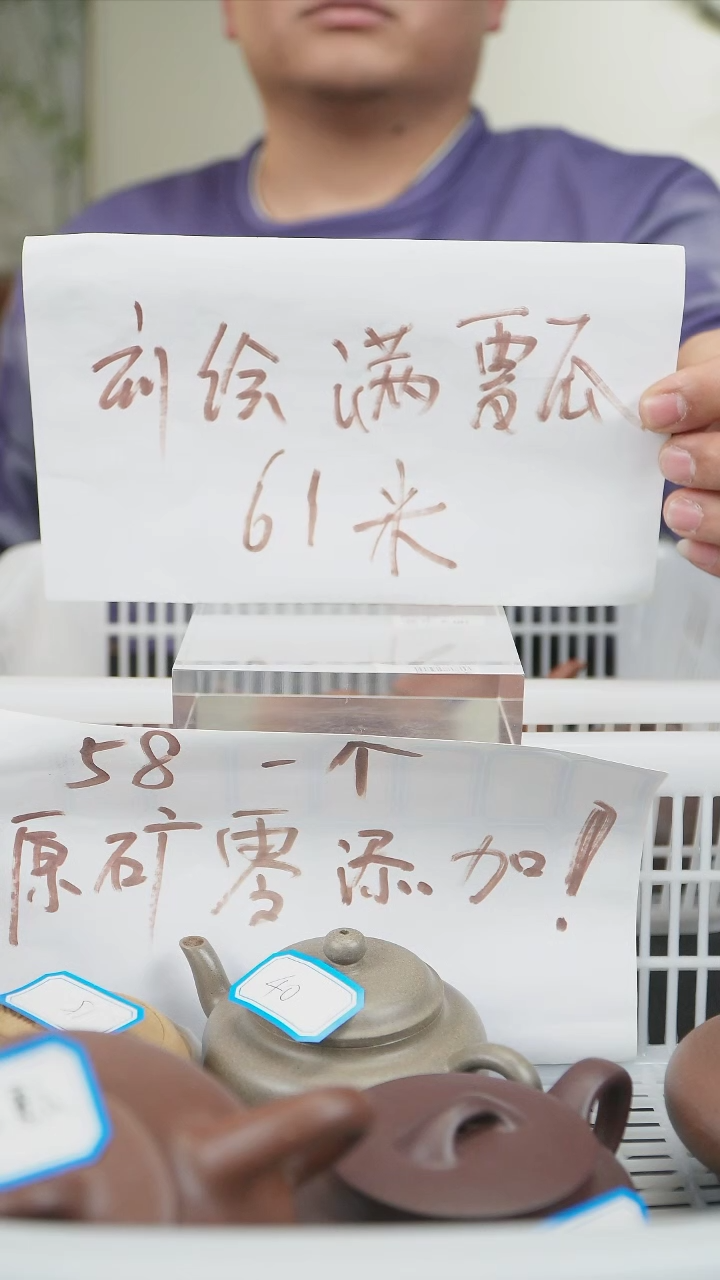 刻绘满瓢
61米
58一个
原矿零添加!
40